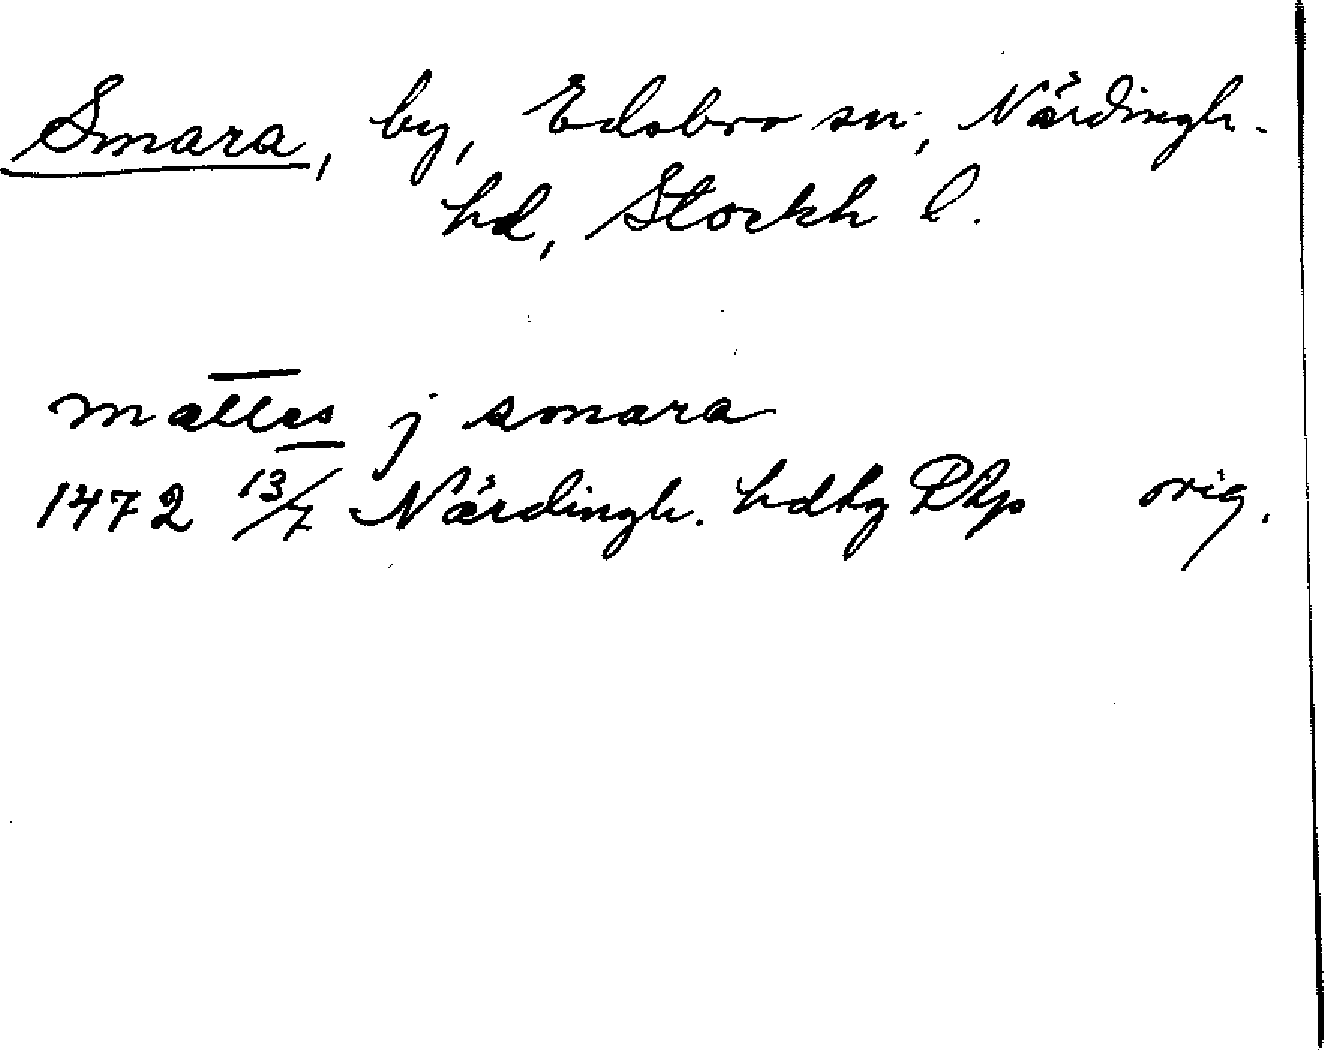 Smara, by, Edsbro sn, Närdingh.
hd, Stockh l.
mattes j smara
1472 13/7 Närdingh. hdtg Php orig.